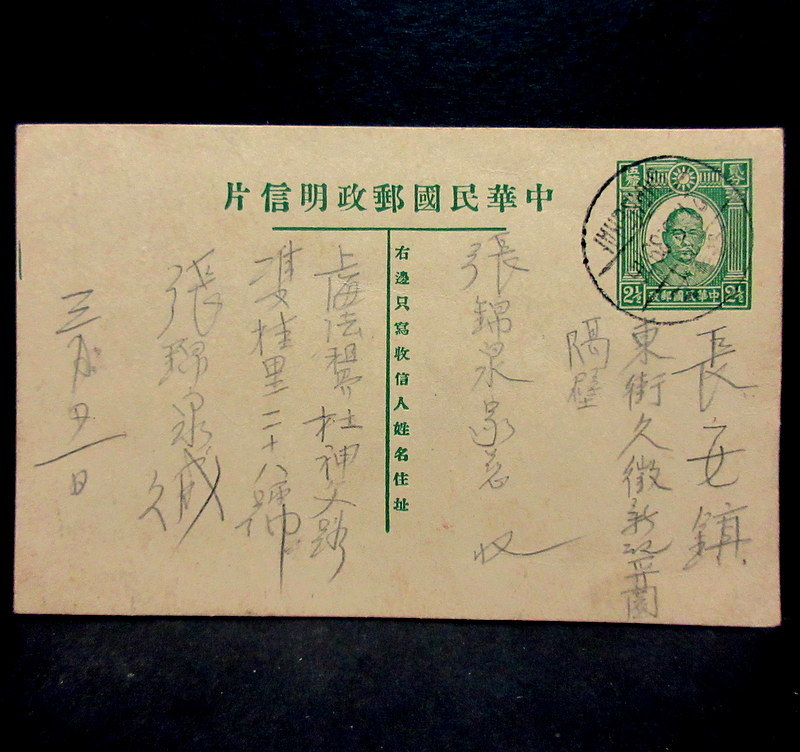 中華民國郵政明信片
貳分
五釐
2½
中華民國郵政
2½
長安鎮
東街久徵新
隔壁
張錦泉家 收
右邊只寫收信人姓名住址
上海法租界杜神父路
雙桂里二十八號
張錦泉緘
三月廿一日